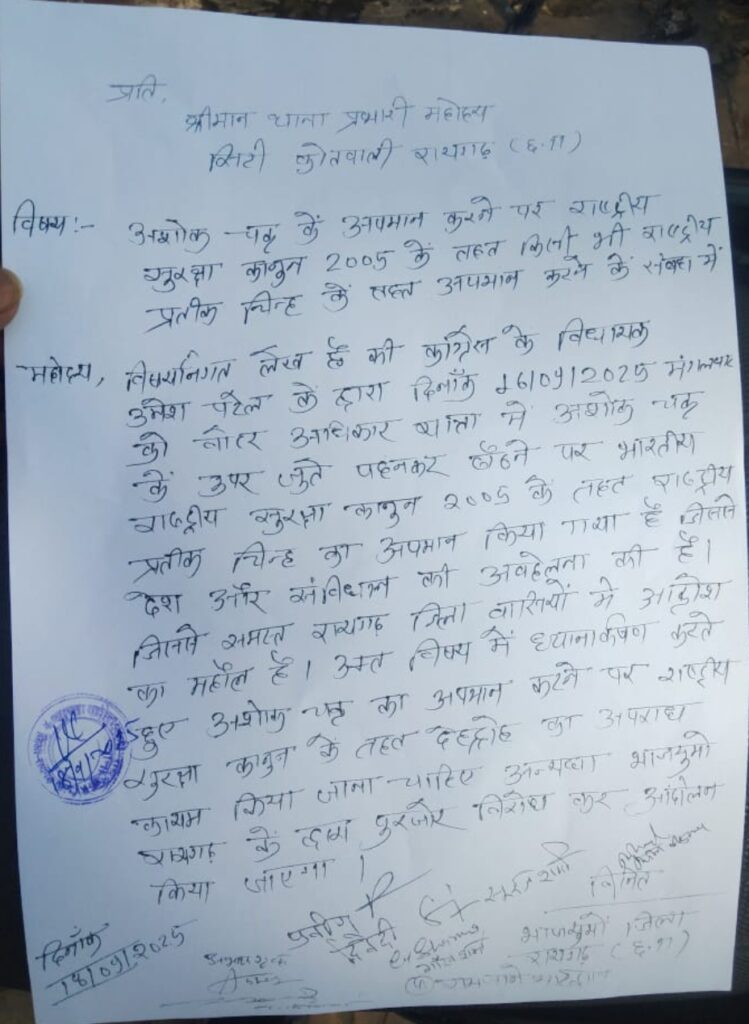 प्रति,
श्रीमान थाना प्रभारी महोदय
सिटी कोतवाली रायगढ़ (छ.ग)
विषय:- अशोक चक्र कें अपमान करने पर राष्ट्रीय
सुरक्षा कानुन 2005 के तहत किसी भी राष्ट्रीय
प्रतीक चिन्ह कें तहत अपमान करने कें संबंध में
महोदय, विषयांनिगत लेख है की कांग्रेस के विधायक
उमेश पटेल कें द्वारा दिनाँक 16/09/2025 मंगलवार
को वोटर अधिकार यात्रा में अशोक चक्र
कें उपर जुते पहनकर बैठने पर भारतीय
राष्ट्रीय सुरक्षा कानुन 2005 कें तहत राष्ट्रीय
प्रतीक चिन्ह का अपमान किया गया है जिसने
देश और संविधान की अवहेलना की है।
जिससे समस्त रायगढ़ जिला वासियों में आक्रोश
का महौल है। अत विषय में ध्यानाकर्षण करते
हुए अशोक चक्र का अपमान करने पर राष्ट्रीय
सुरक्षा कानुन कें तहत देशद्रोह का अपराध
कायम किया जाना चाहिए अन्यथा भाजयुमो
रायगढ़ कें द्वारा पुरजोर विरोध कर आंदोलन
किया जाएगा।
दिनाँक
18/09/2025
प्रवीण द्विवेदी
विनित
भाजयुमों जिला
रायगढ़ (छ.ग)